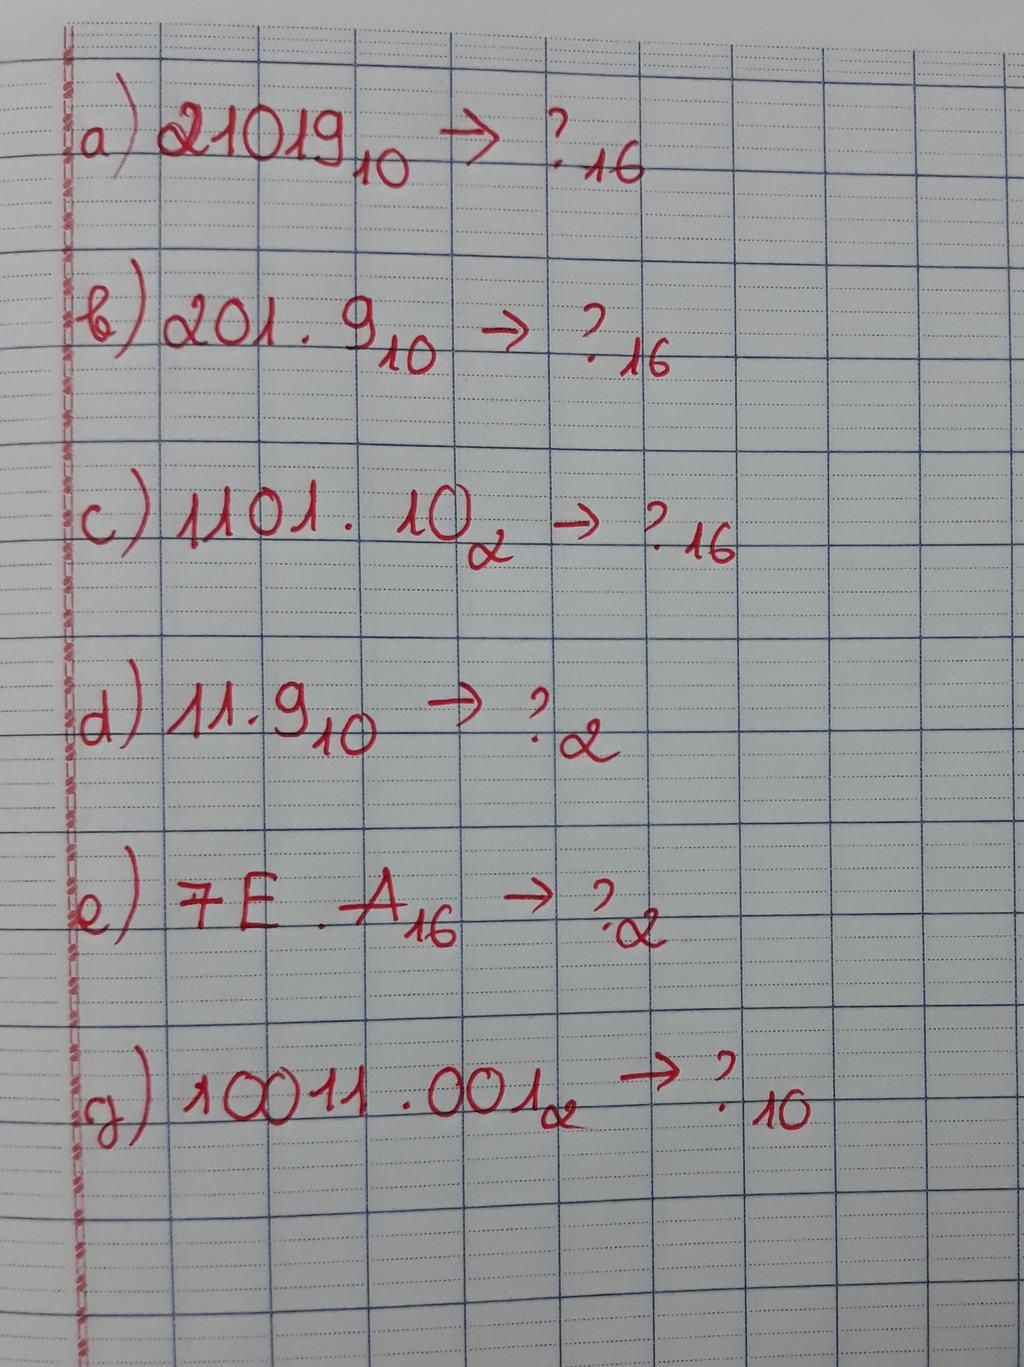 a) 21019₁₀ → ?₁₆
b) 201.9₁₀ → ?₁₆
c) 1101.10₂ → ?₁₆
d) 11.9₁₀ → ?₂
e) 7E.A₁₆ → ?₂
g) 10011.001₂ → ?₁₀